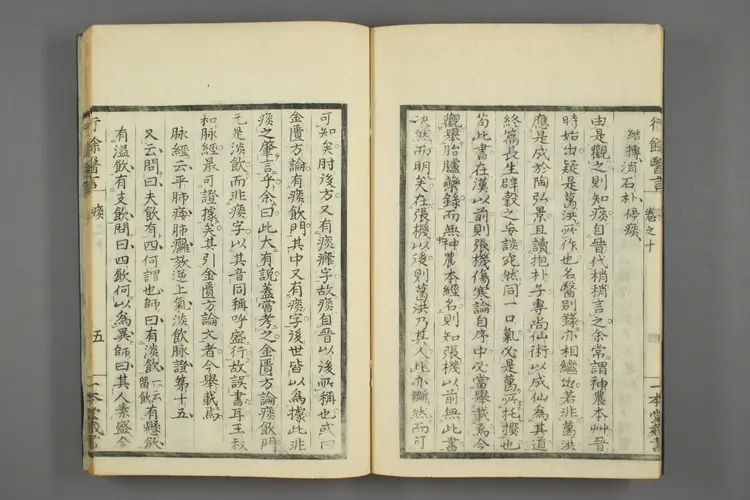 行餘醫言 卷之十 一本堂藏書
結摶消石朴停痰
由是觀之則知痰自晉代梢梢言之余常謂神農本艸晉
時始出疑是葛洪所作也名醫別錄亦相繼出若非葛洪
應是成於陶弘景且讀抱朴子專尚仙術以成仙為其道
終篇長生辟穀之妄談宛然同一口氣必是葛所托撰也
苟此書在漢以前則張機傷寒論自序中必當舉載焉今
觀舉胎臚藥錄而無神農本經名則知張機以前無此書
決然而明矣在張機以後則葛洪乃其人此亦斷然而可
可知矣肘後方又有痰癊字故痰自晉以後所稱也或曰
金匱方論有痰飲門其中又有痰字後世皆以為據此非
痰之肇言乎余曰此大有說蓋嘗考之金匱方論痰飲門
元是淡飲而非痰字以其音同稱呼盛行故誤書耳王叔
和脉經最可證據矣其引金匱方論文者今舉載焉
脉經云平肺痿肺癰欬逆上氣淡飲脉證第十五
又云問曰夫飲有四何謂也師曰有淡飲一云留飲有懸飲
有溢飲有支飲問曰四飲何以為異師曰其人素盛今
行餘醫言 痰 五 一本堂藏書